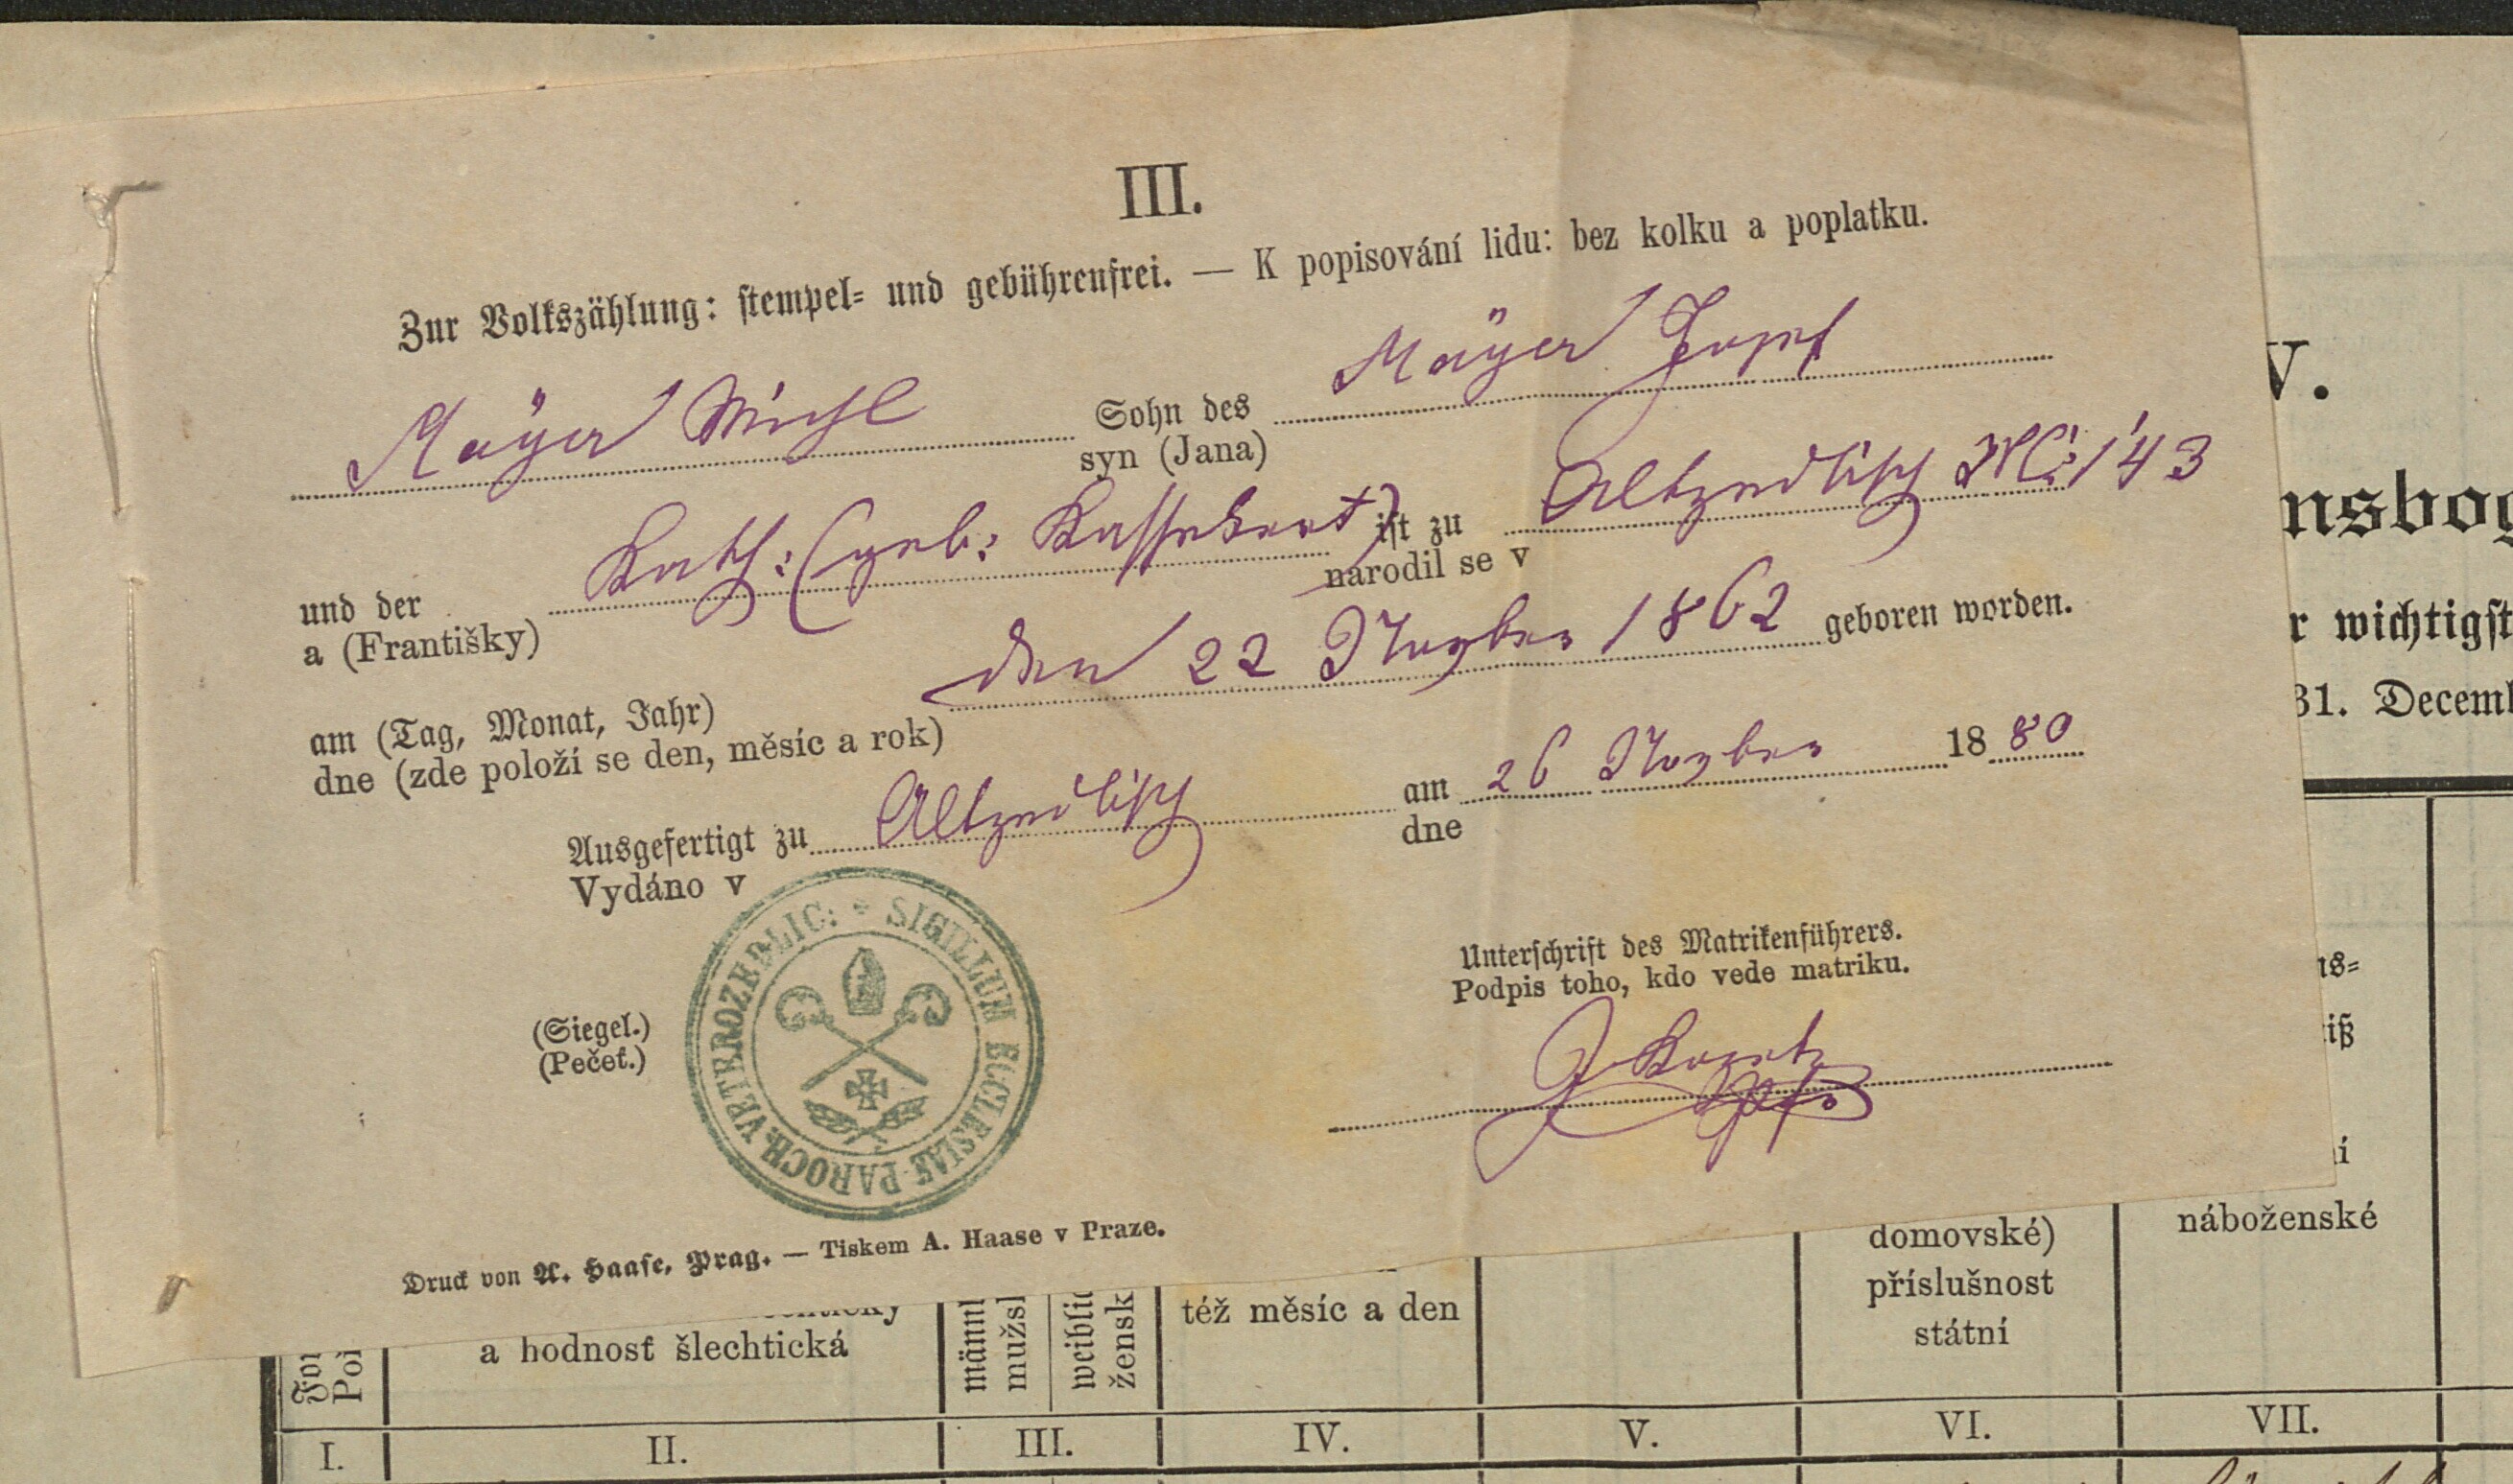 III.
Zur Volkszählung: stempel- und gebührenfrei. — K popisování lidu: bez kolku a poplatku.
Mayer Michl Sohn des Mayer Josef
syn (Jana)
und der Kath: (geb: ist zu Altzedlisch N: 143
a (Františky) narodil se v
am (Tag, Monat, Jahr) den 22 1862 geboren worden.
dne (zde položí se den, měsíc a rok)
Ausgefertigt zu Altzedlisch am 26 1880
Vydáno v dne
Unterschrift des Matrikenführers.
Podpis toho, kdo vede matriku.
(Siegel.)
(Pečeť.)
SIGILLUM ECCLESIAE PAROCH. VETEROZEDLIC:
Druck von A. Haase, Prag. — Tiskem A. Haase v Praze.
V.
nsbog
r wichtigst
31. Decemb
us-
iß
ní
a hodnosť šlechtická
männl
mužsk
weiblic
žensk
též měsíc a den
domovské)
příslušnost
státní
náboženské
I. II. III. IV. V. VI. VII.